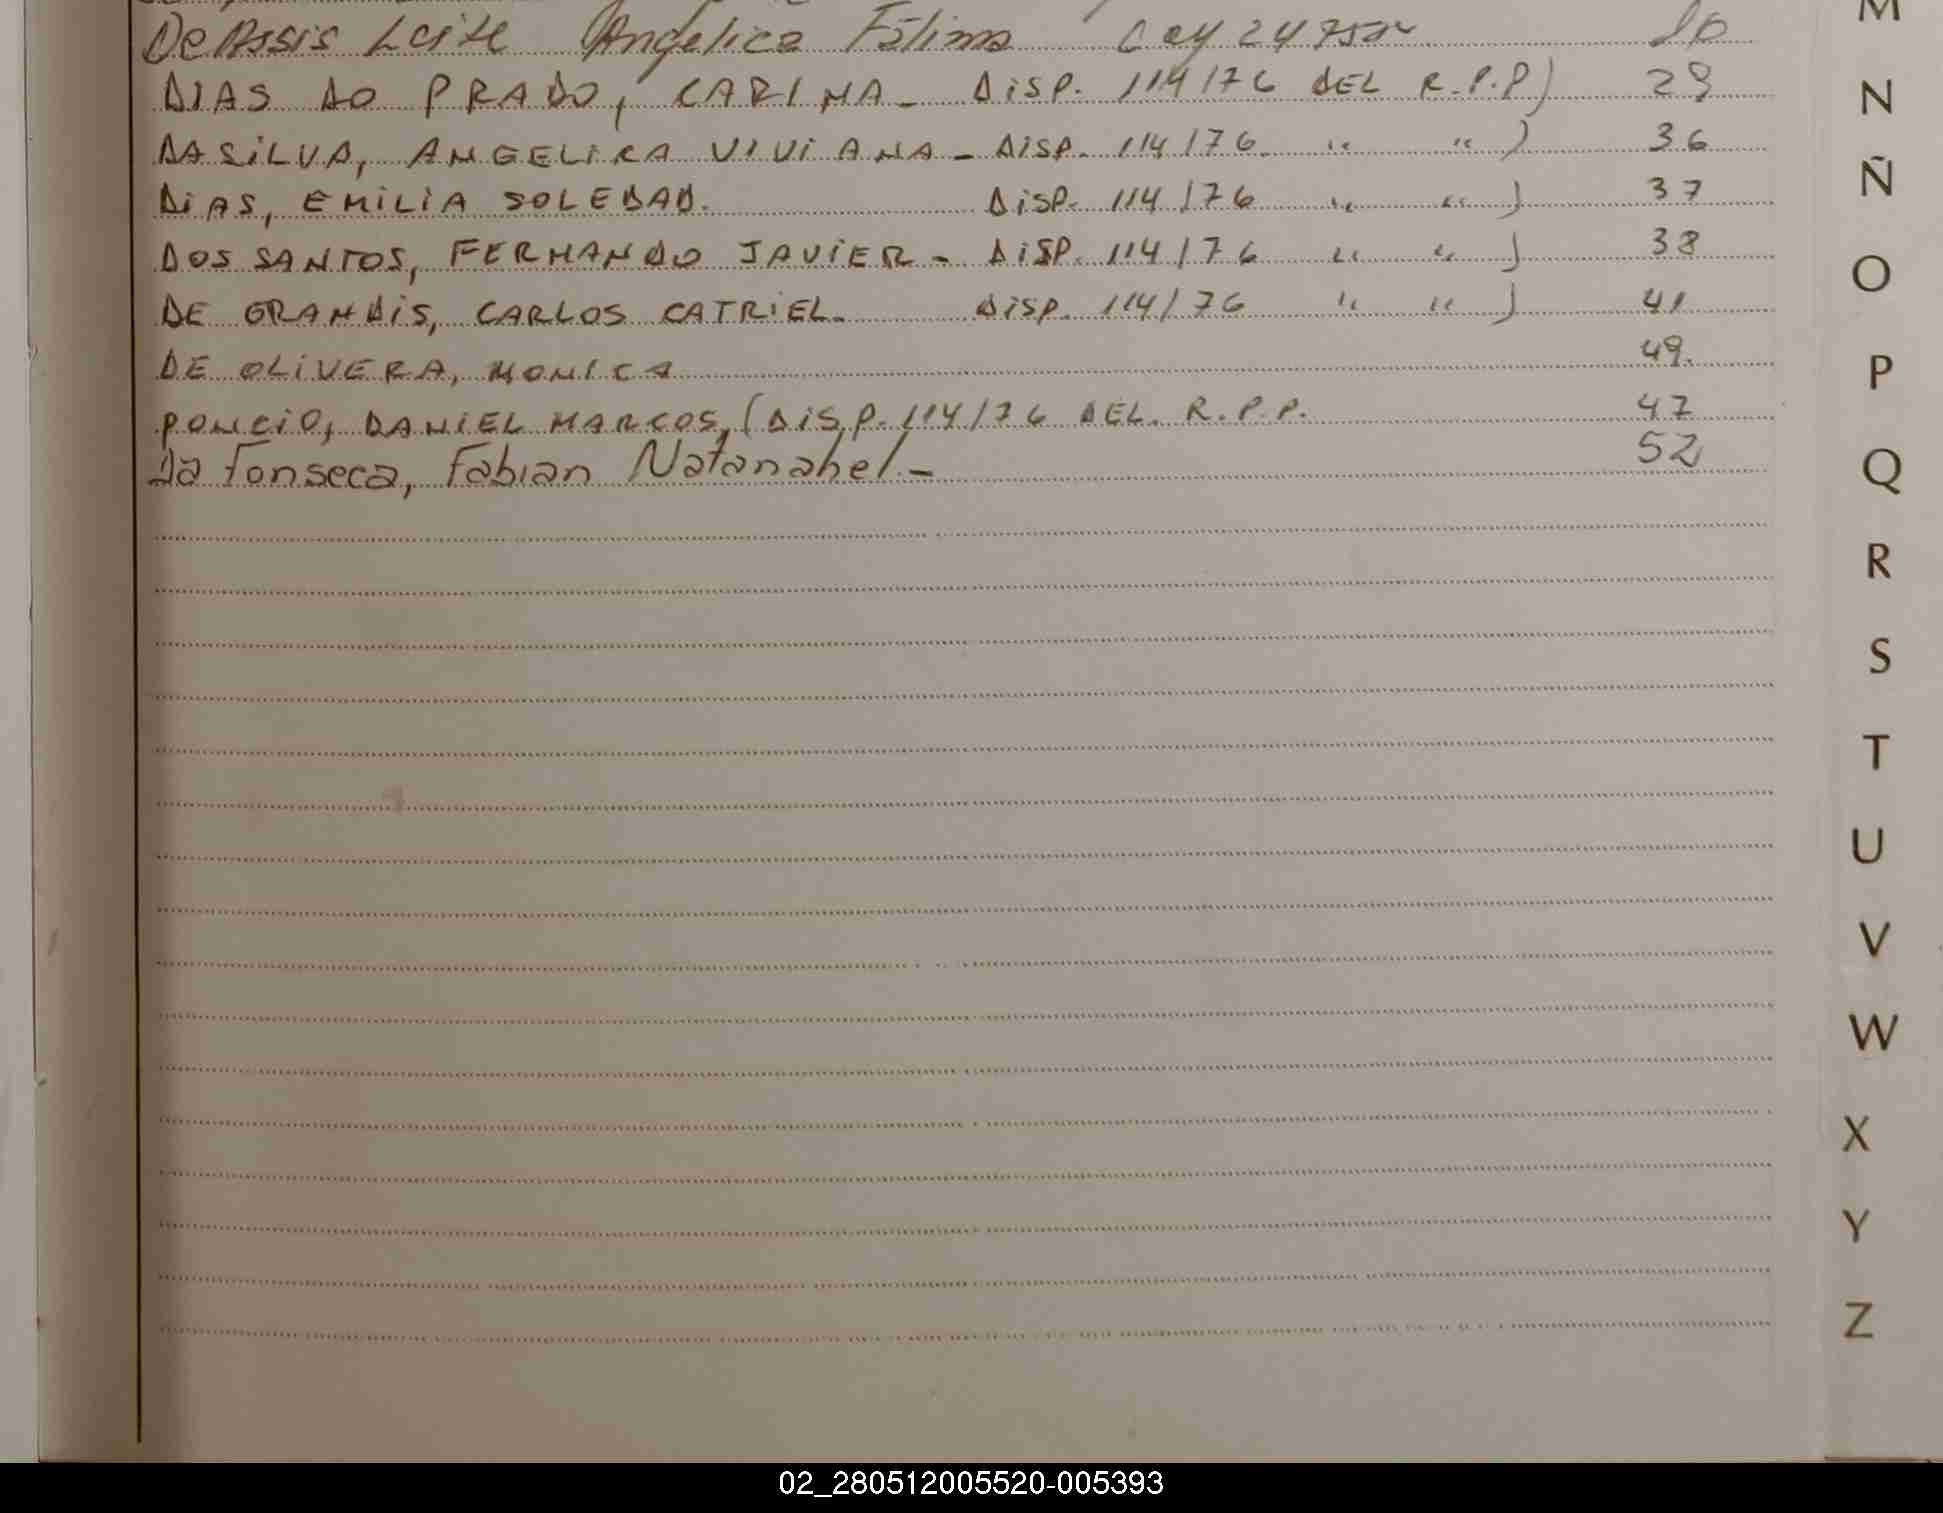 De Assis Leite Angelica Fátima Ley 24 M
DIAS DO PRADO, CARINA - DISP. 114/76 DEL R.P.P) 29 N
DASILVA, ANGELICA VIVIANA - DISP. 114/76 " " ) 36
DIAS, EMILIA SOLEDAD. DISP. 114/76 " " ) 37 Ñ
DOS SANTOS, FERNANDO JAVIER - DISP. 114/76 " " ) 38 O
DE GRANDIS, CARLOS CATRIEL. DISP. 114/76 " " ) 41
DE OLIVERA, MONICA 49. P
PONCIO, DANIEL MARCOS, (DISP. 114/76 DEL. R.P.P. 47
Da Fonseca, Fabian Natanahel.- 52 Q
R
S
T
U
V
W
X
Y
Z
02_280512005520-005393